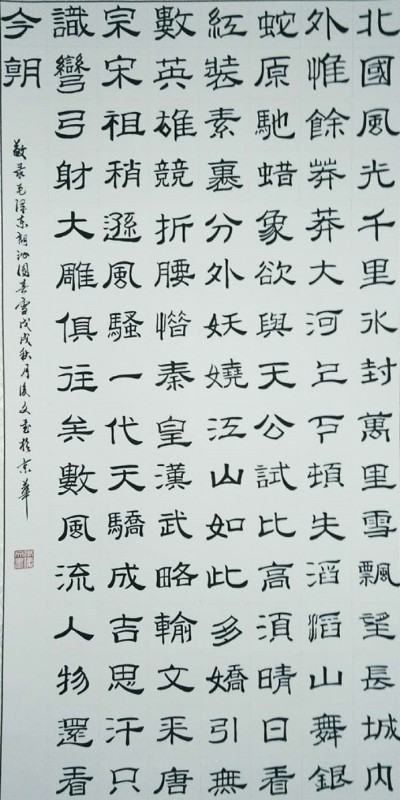 北國風光千里氷封萬里雪飄望長城内
外惟餘莽莽大河上下頓失滔滔山舞銀
蛇原馳蜡象欲與天公試比高須晴日看
紅裝素裹分外妖嬈江山如此多嬌引無
數英雄競折腰惜秦皇漢武略輸文采唐
宗宋祖稍遜風騷一代天驕成吉思汗只
識彎弓射大雕俱往矣數風流人物還看
今朝
敬录毛澤东詞沁園春雪戊戌秋月文书於京華